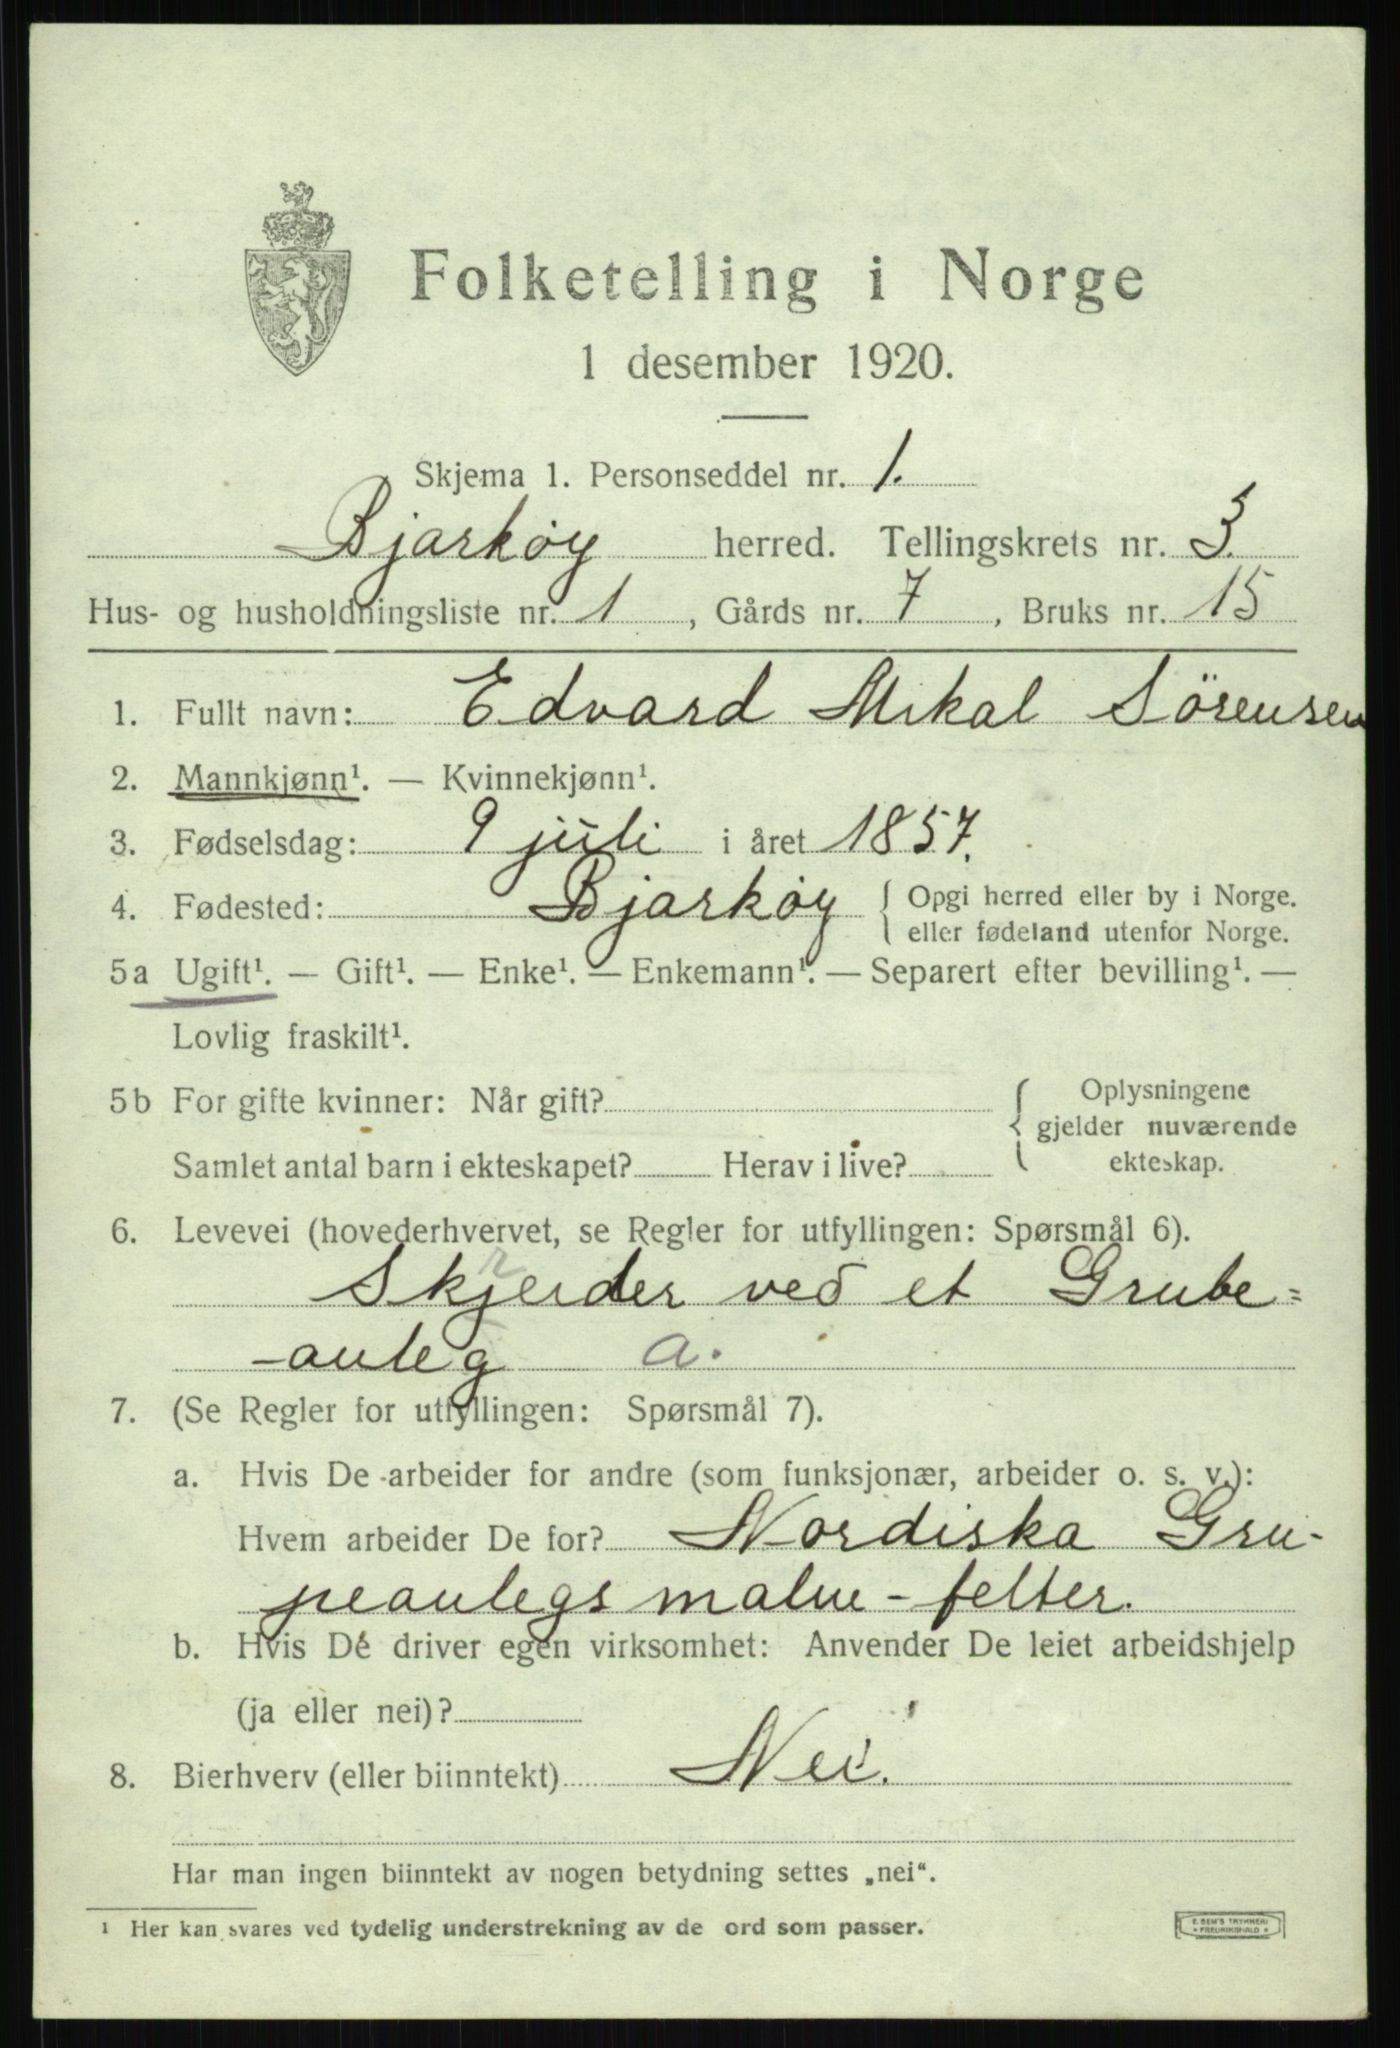 Folketelling i Norge
1 desember 1920.
Skjema 1. Personseddel nr. 1.
Bjarkøy herred. Tellingskrets nr. 3.
Hus- og husholdningsliste nr. 1, Gårds nr. 7, Bruks nr. 15
1. Fullt navn: Edvard Mikal Sörensen
2. Mannkjønn¹. — Kvinnekjønn¹.
3. Fødselsdag: 9 juli i året 1857.
4. Fødested: Bjarkøy { Opgi herred eller by i Norge.
eller fødeland utenfor Norge.
5a Ugift¹. — Gift¹. — Enke¹. — Enkemann¹. — Separert efter bevilling¹. —
Lovlig fraskilt¹.
5b For gifte kvinner: Når gift? { Oplysningene
gjelder nuværende
ekteskap.
Samlet antal barn i ekteskapet? Herav i live?
6. Levevei (hovederhvervet, se Regler for utfyllingen: Spørsmål 6).
Skjerder ved et Grube=
-anleg a.
7. (Se Regler for utfyllingen: Spørsmål 7).
a. Hvis De arbeider for andre (som funksjonær, arbeider o. s. v.):
Hvem arbeider De for? Nordiska Gru-
peanlegs malm-felter.
b. Hvis De driver egen virksomhet: Anvender De leiet arbeidshjelp
(ja eller nei)?
8. Bierhverv (eller biinntekt) Nei.
Har man ingen biinntekt av nogen betydning settes „nei“.
¹ Her kan svares ved tydelig understrekning av de ord som passer.
E. SEM'S TRYKKERI
FREDRIKSHALD